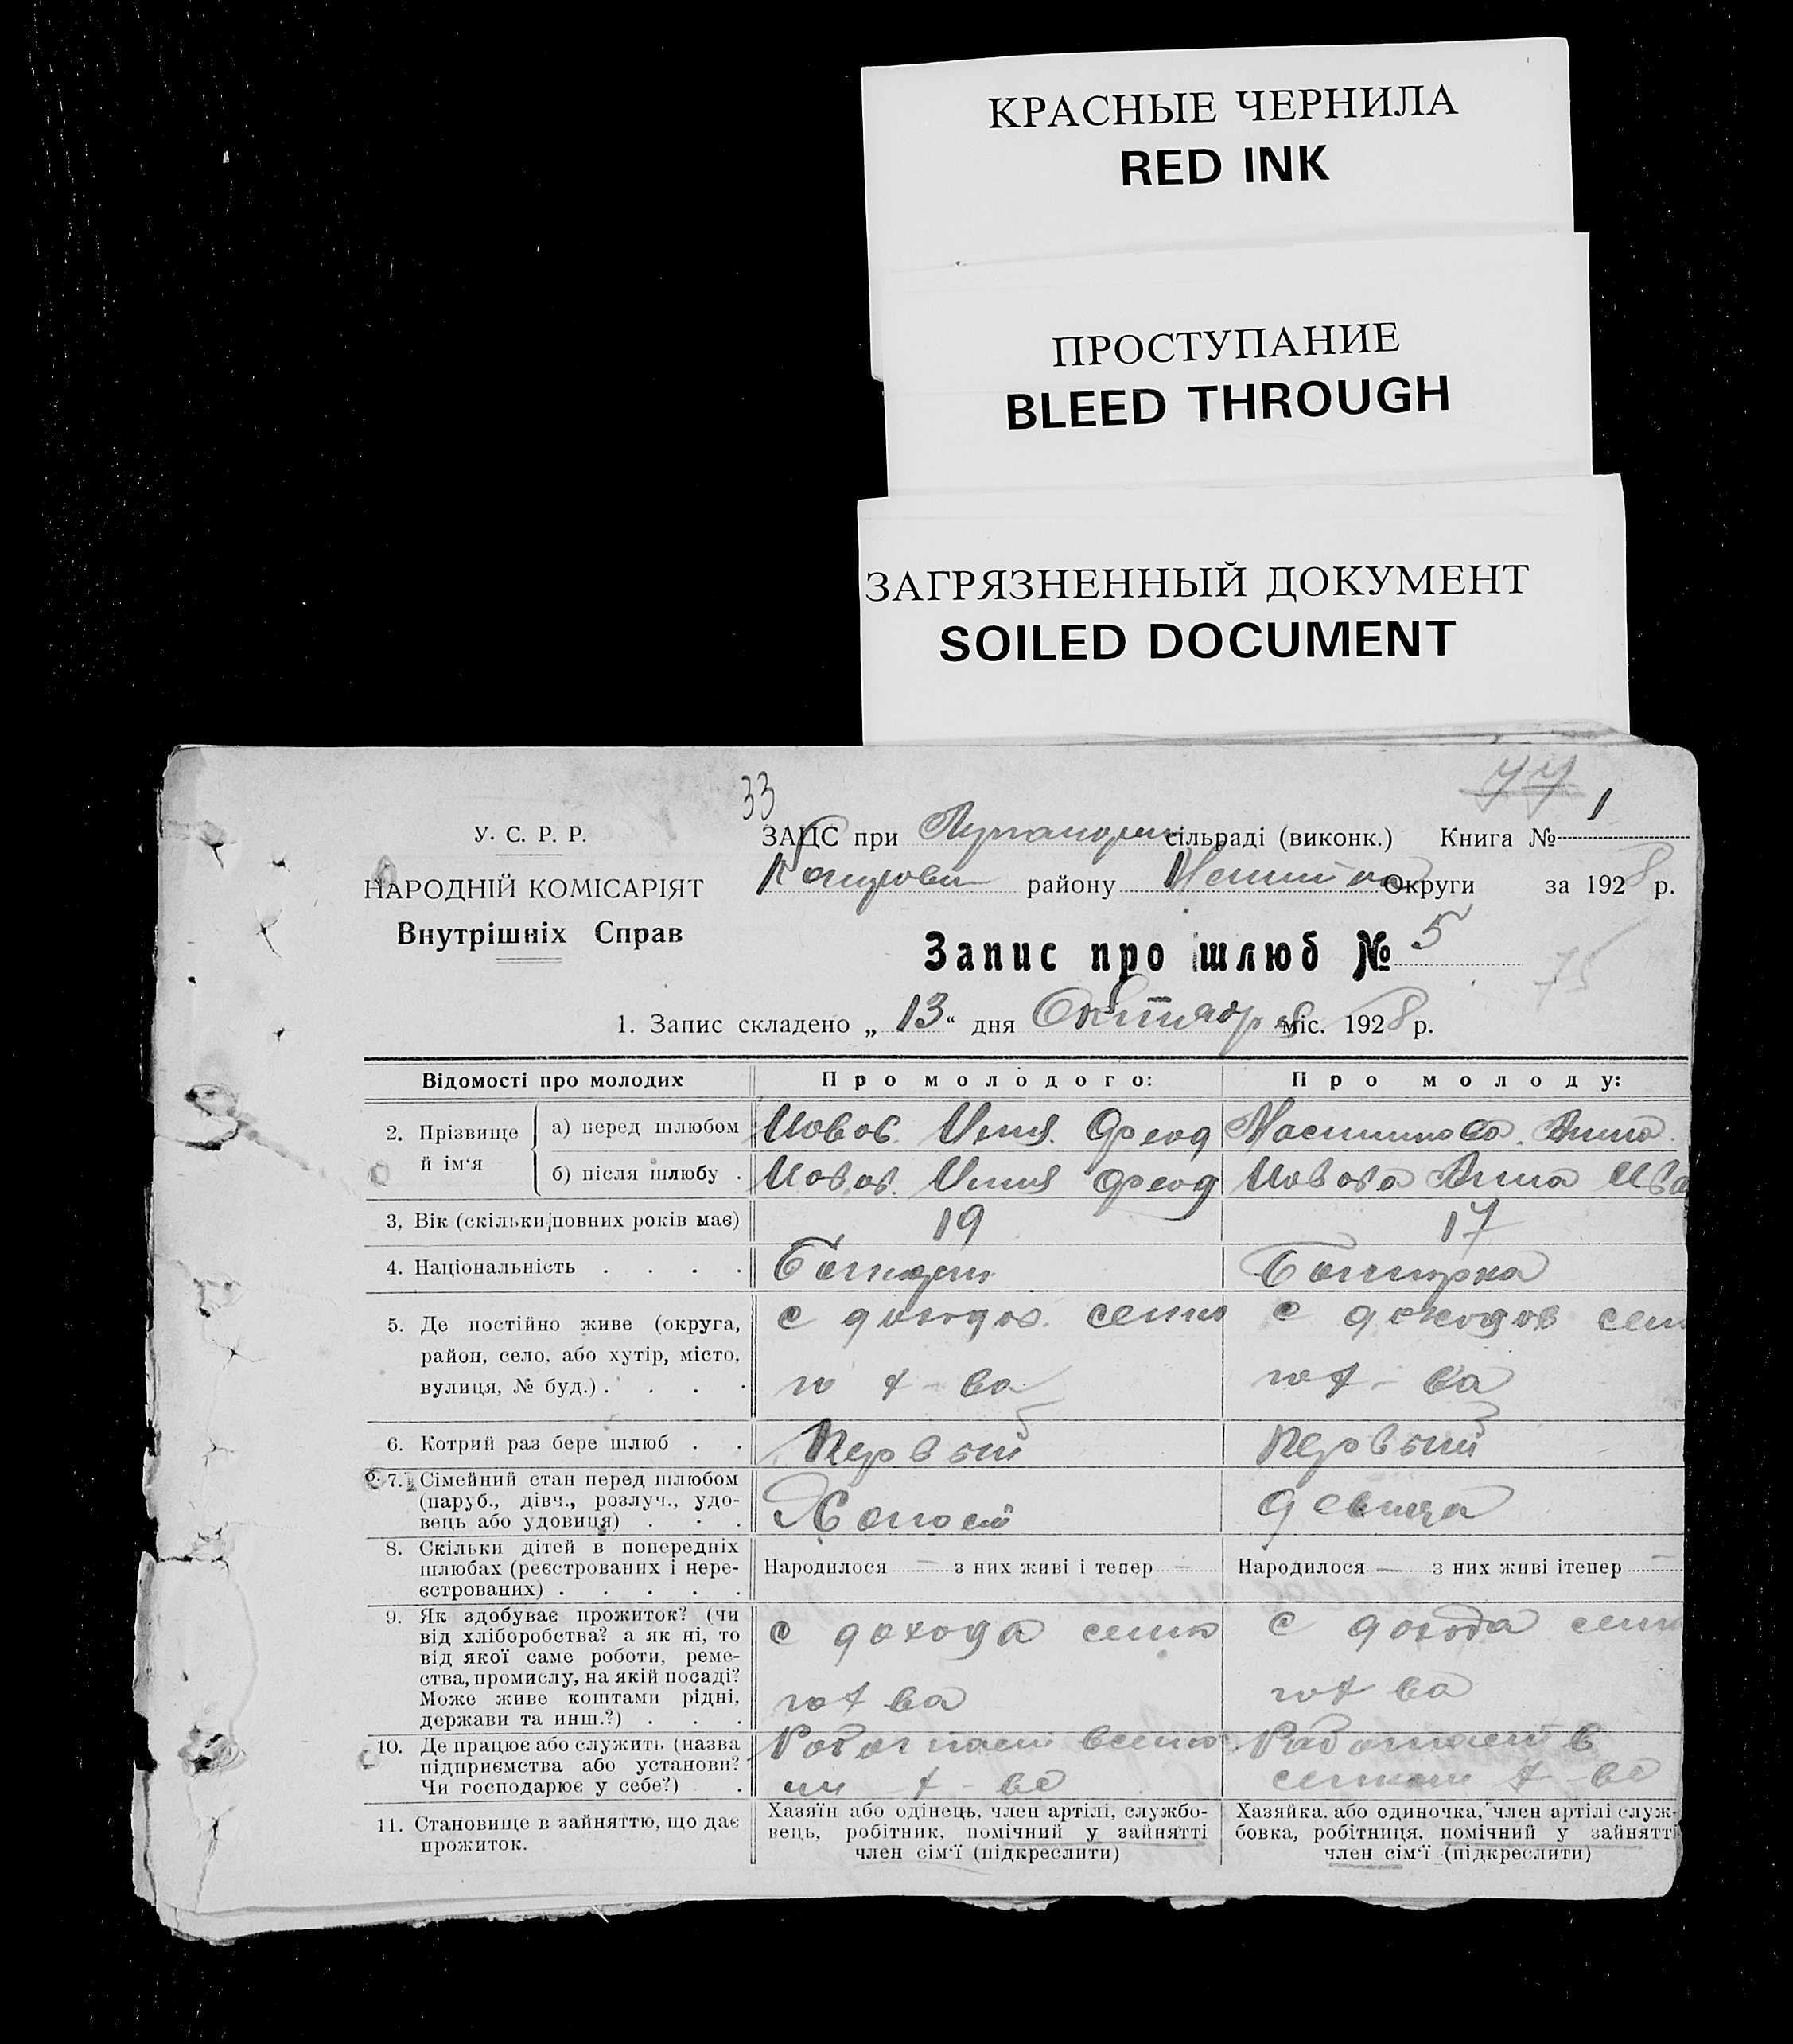 КРАСНЫЕ ЧЕРНИЛА
RED INK
ПРОСТУПАНИЕ
BLEED THROUGH
ЗАГРЯЗНЕННЫЙ ДОКУМЕНТ
SOILED DOCUMENT
77
33
У. С. Р. Р.
ЗАЦС при сільраді (виконк.) Книга № 1
НАРОДНІЙ КОМІСАРІЯТ
району Округи за 1928 р.
Внутрішніх Справ
Запис про шлюб № 5
75
1. Запис складено „ 13 “ дня Октября міс. 1928 р.
Відомості про молодих Про молодого: Про молоду:
2. Прізвище й ім‘я
а) перед шлюбом Иовов. Илия. Анна.
б) після шлюбу . Иовов. Илия Иовова Анна Ива
3, Вік (скільки повних років має) 19 17
4. Національність . . . . Болгарка
5. Де постійно живе (округа, район, село, або хутір, місто, вулиця, № буд.) . . . .
с доходов. сельско с доходов сель
го х-ва го х-ва
6. Котрий раз бере шлюб . . Первый Первый
7. Сімейний стан перед шлюбом
(паруб., дівч., розлуч., удо-
вець або удовиця) . . .
Холост девица
8. Скільки дітей в попередніх
шлюбах (реєстрованих і нере-
єстрованих) . . . . .
Народилося — з них живі і тепер — Народилося — з них живі ітепер —
9. Як здобуває прожиток? (чи
від хліборобства? а як ні, то
від якої саме роботи, реме-
ства, промислу, на якій посаді?
Може живе коштами рідні,
держави та инш.?) . . .
с дохода сельск с дохода сельс
го х ва го х ва
10. Де працює або служить (назва
підприємства або установи?
Чи господарює у себе?) .
Работает Работает в
х-ве х-ве
11. Становище в зайняттю, що дає
прожиток.
Хазяїн або одінець, член артілі, службо-
вець, робітник, помічний у зайнятті
член сім‘ї (підкреслити)
Хазяйка, або одиночка, член артілі служ-
бовка, робітниця, помічний у зайнятті
член сім‘ї (підкреслити)